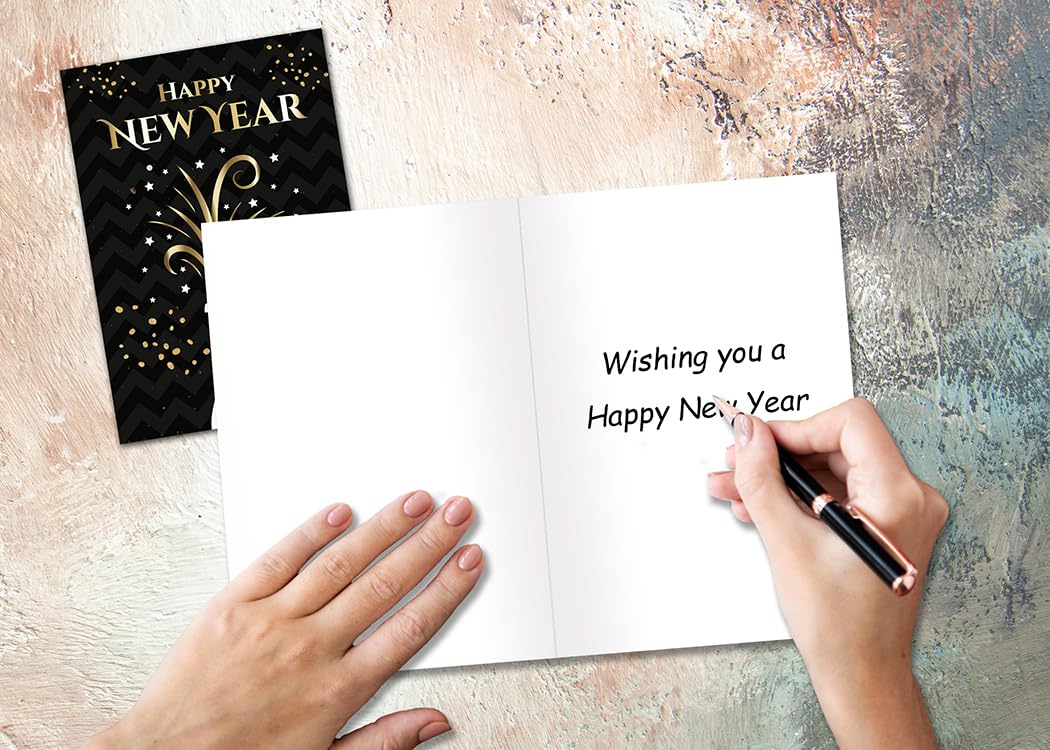 Happy
New Year
Wishing you a
Happy New Year